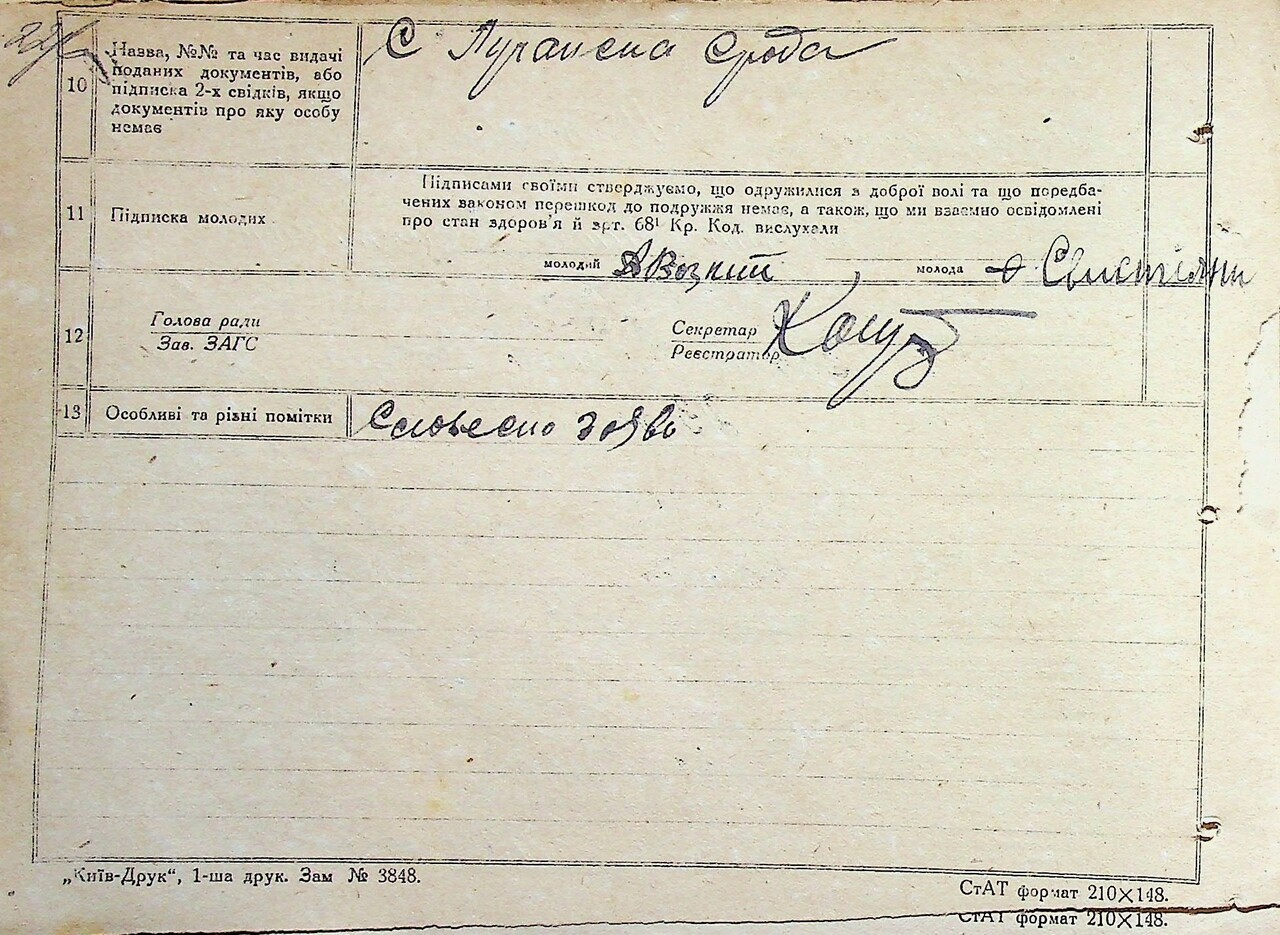 10
Назва, №№ та час видачі
поданих документів, або
підписка 2-х свідків, якщо
документів про яку особу
немає
С
11
Підписка молодих
Підписами своїми стверджуємо, що одружилися з доброї волі та що передба-
чених законом перешкод до подружжя немає, а також, що ми взаємно освідомлені
про стан здоров'я й арт. 68¹ Кр. Код. вислухали
молодий
молода
12
Голова ради
Зав. ЗАГС
Секретар
Реєстратор
13
Особливі та різні помітки
„Київ-Друк“, 1-ша друк. Зам № 3848.
СтАТ формат 210×148.
СтАТ формат 210×148.